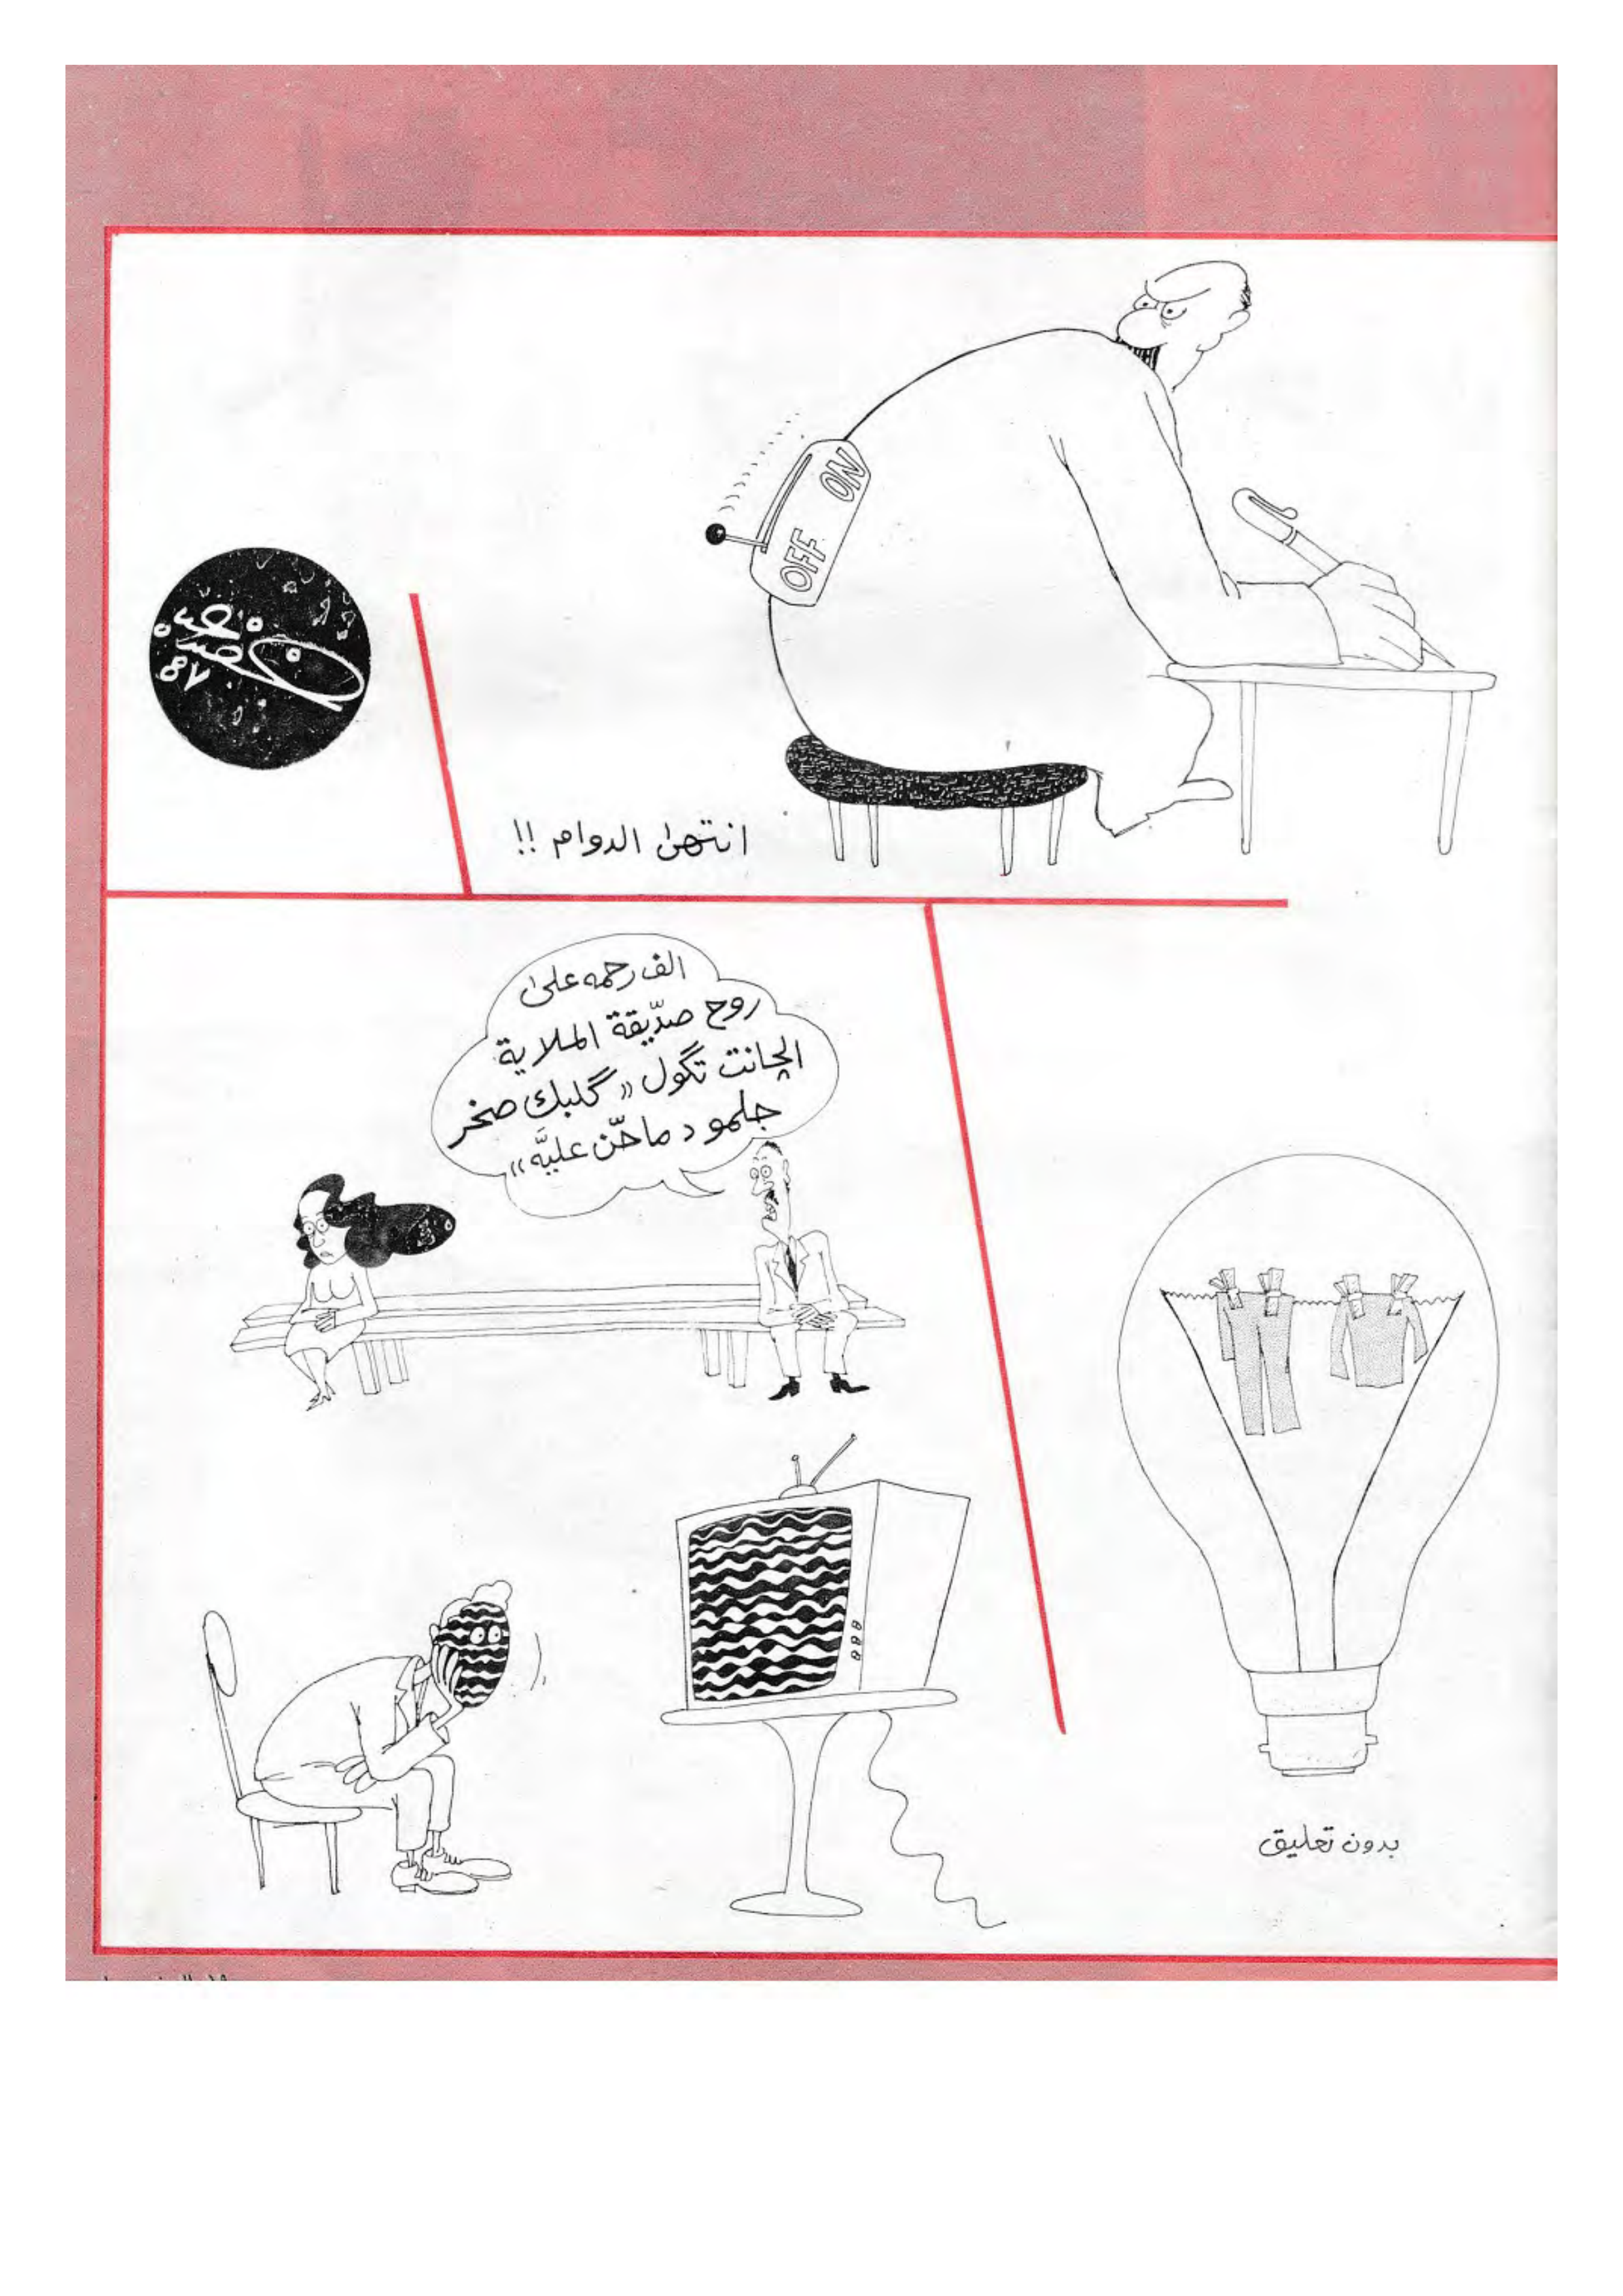 ON
OFF
انتهىٰ الدوام !!
الف رحمه علىٰ
روح صدّيقة الملاية
الچانت تگول « گلبك صخر
جلمود ماحّن عليَّه »
بدون تعليق